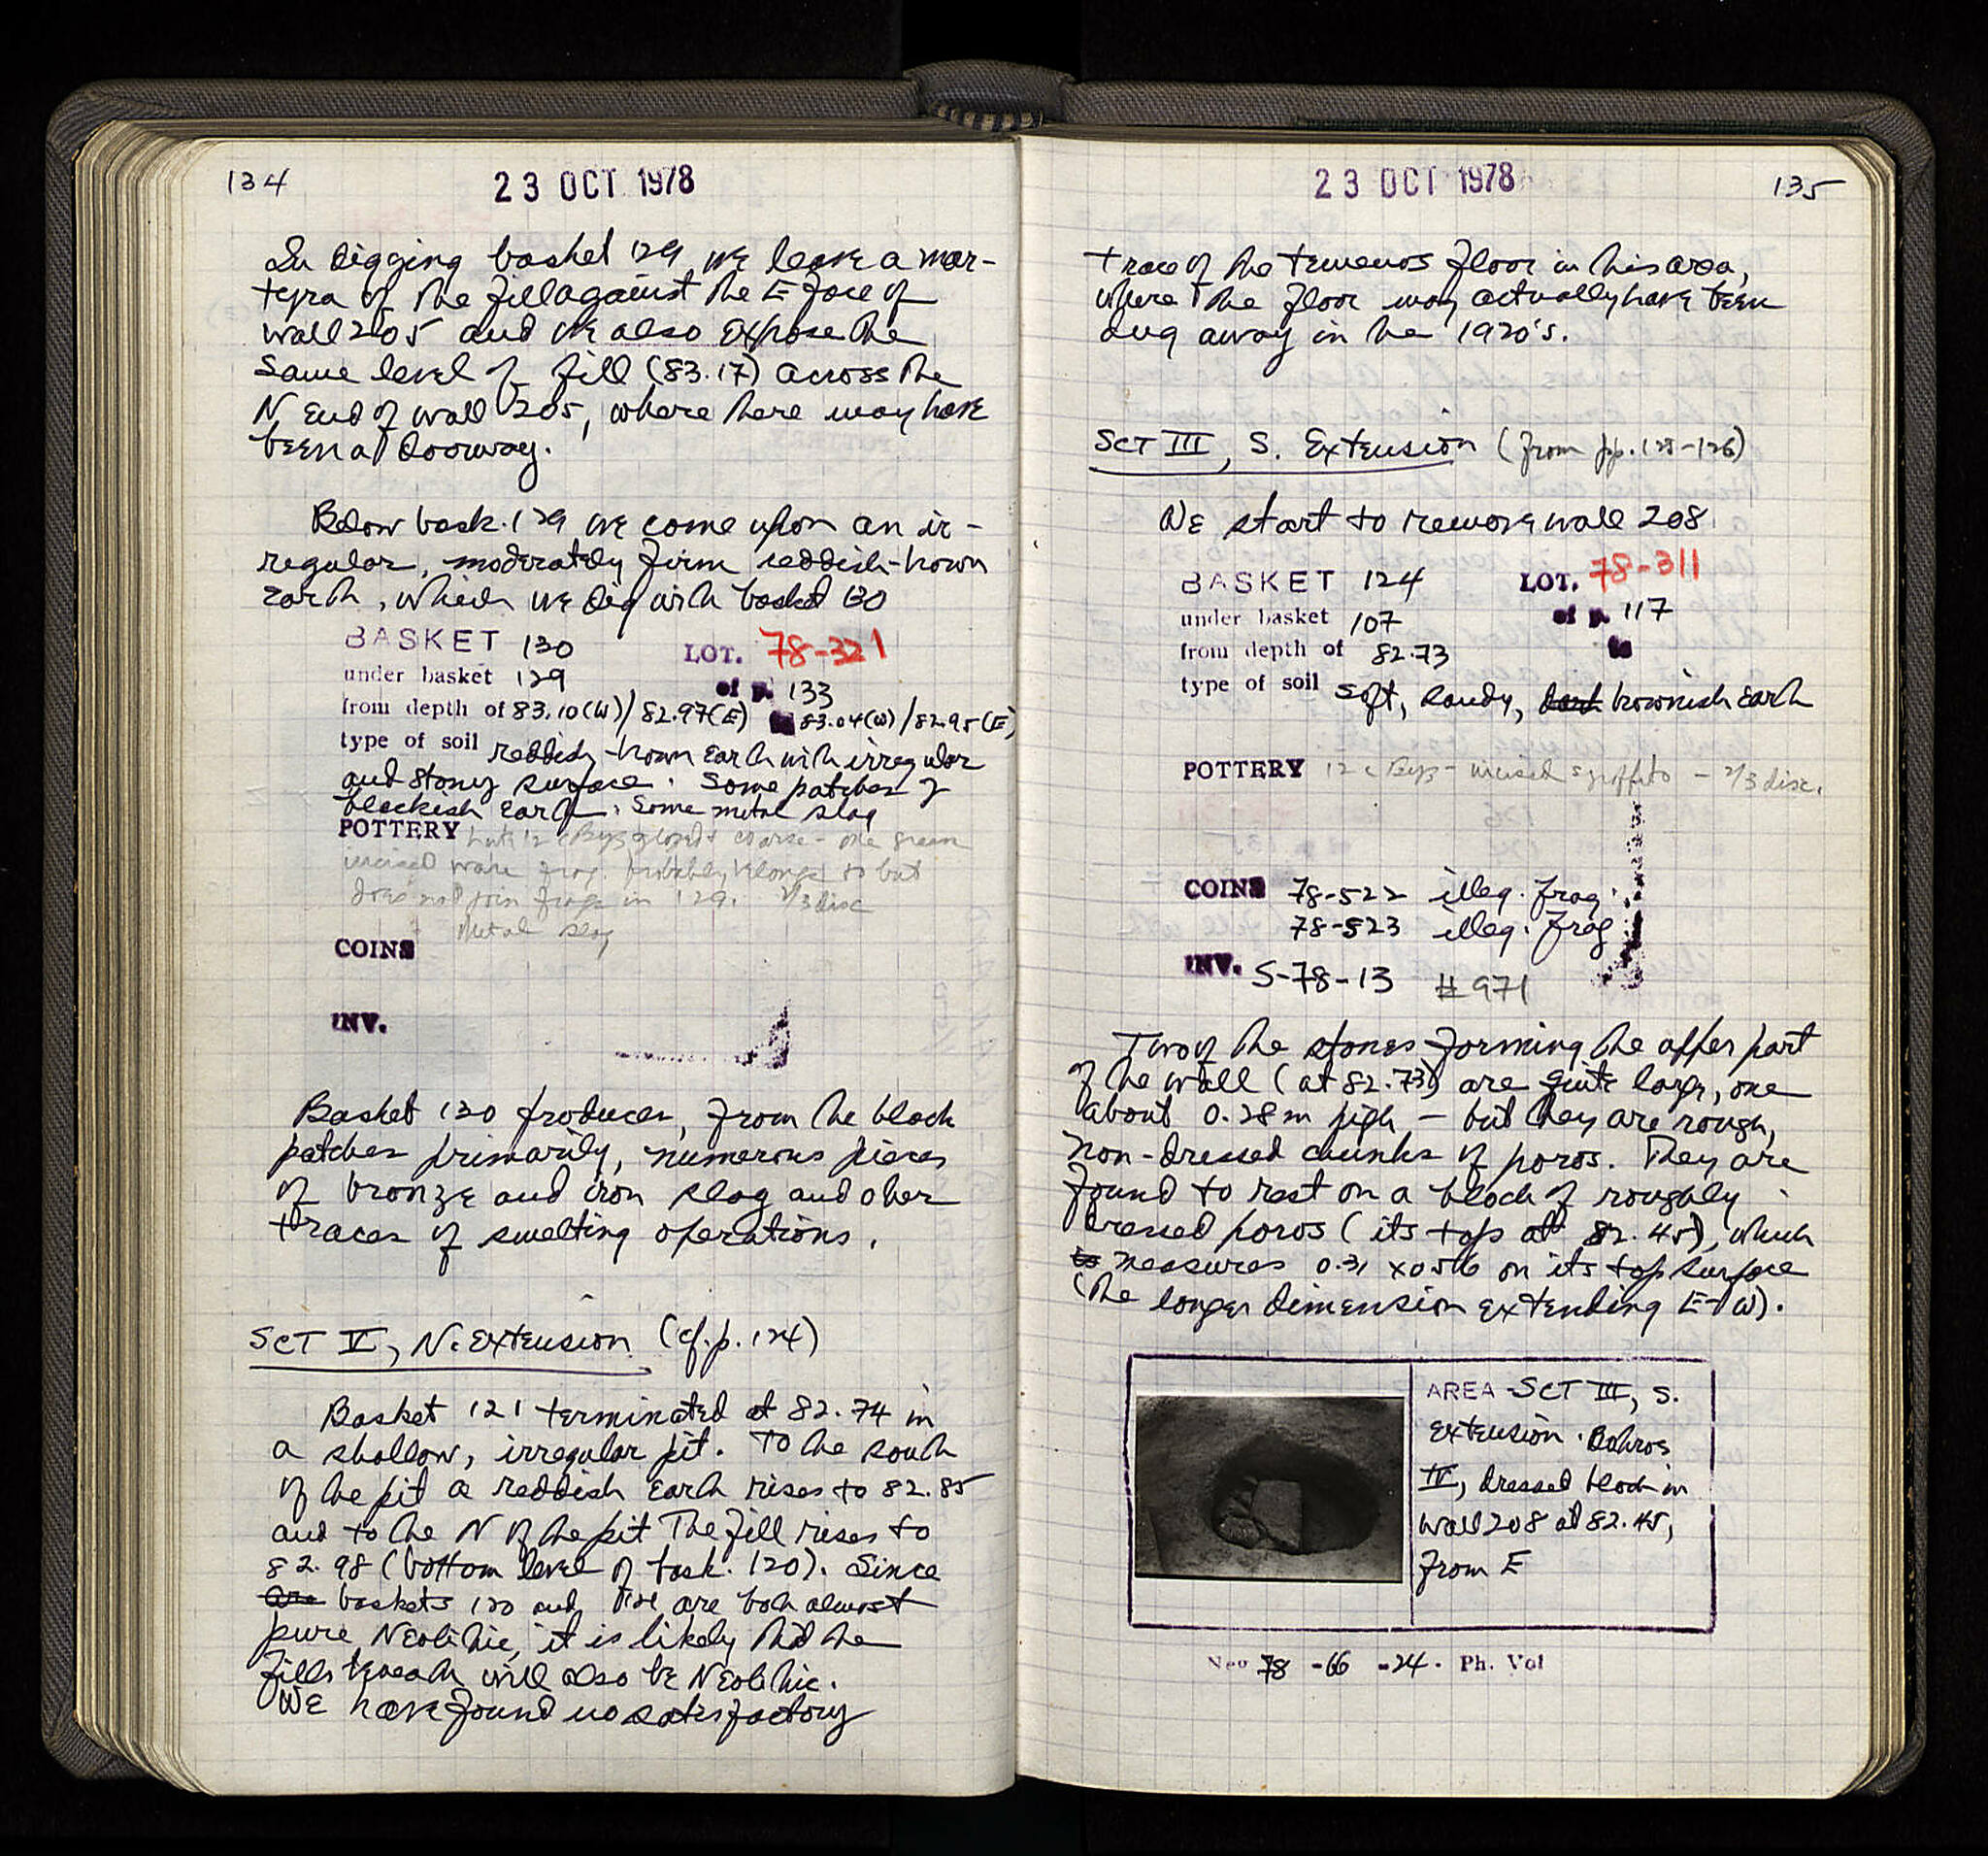 134
23 OCT 1978
In digging basket 129 we leave a mar-
tyra of the fill against the E face of
wall 205 and we also expose the
same level of fill (83.17) across the
N end of wall 205, where there may have
been a doorway.
Below bask. 129 we come upon an ir-
regular, moderately firm reddish-brown
earth, which we dig with basket 130
BASKET 130 LOT. 78-321
under basket 129 of p. 133
from depth of 83.10(W)/82.97(E) to 83.04(W)/82.95(E)
type of soil reddish-brown earth with irregular
and stony surface. Some patches of
blackish earth. Some metal slag
POTTERY Late 12 c Byz glazed + coarse - one green
incised ware frag. probably belongs to but
does not join frags in 129. 2/3 disc
Metal slag
COINS
INV.
Basket 130 produces, from the black
patches primarily, numerous pieces
of bronze and iron slag and other
traces of smelting operations.
SCT V, N. Extension (cf. p. 124)
Basket 121 terminated at 82.74 in
a shallow, irregular pit. To the south
of the pit a reddish earth rises to 82.85
and to the N of the pit the fill rises to
82.98 (bottom level of bask. 120). Since
baskets 120 and 121 are both almost
pure Neolithic, it is likely that the
fills beneath will also be Neolithic.
We have found no satisfactory
23 OCT 1978
135
trace of the temenos floor in this area,
where the floor may actually have been
dug away in the 1920's.
SCT III, S. Extension (from pp. 125-126)
We start to remove wall 208
BASKET 124 LOT. 78-311
under basket 107 of p. 117
from depth of 82.73 to
type of soil soft, sandy, brownish earth
POTTERY 12 c Byz - incised sgraffito - 2/3 disc.
COINS 78-522 illeg. frag.
78-523 illeg. frag
INV. S-78-13 #971
Two of the stones forming the upper part
of the wall (at 82.73) are quite large, one
about 0.28m high - but they are rough,
non-dressed chunks of poros. They are
found to rest on a block of roughly
dressed poros (its top at 82.45), which
measures 0.31 x 0.56 on its top surface
(the longer dimension extending E-W).
AREA SCT III, S.
Extension. Bothros
IV, dressed block in
wall 208 at 82.45,
from E
Neg 78 -66 -24. Ph. Vol